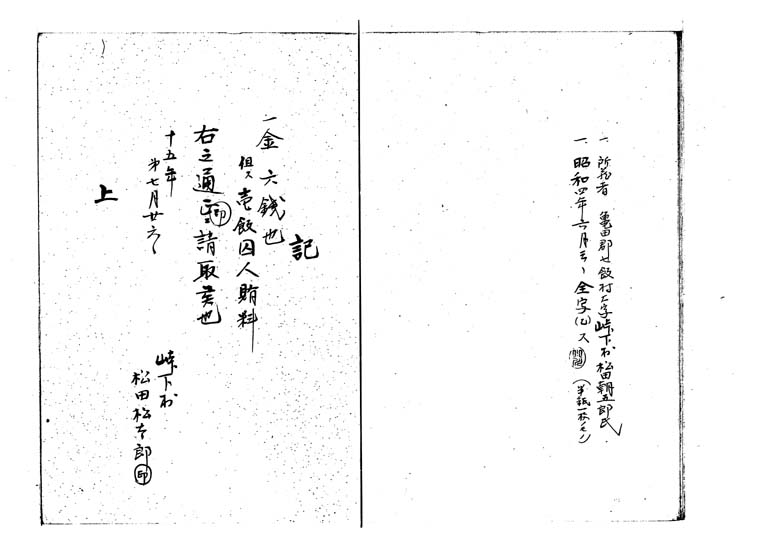 一、所蔵者 亀田郡七飯村大字峠下村松田朝五郎氏
一、昭和四年六月三、全写(乙)ス (半紙一枚ノモノ)
記
一金 六銭也
但シ壱飯囚人賄料
右之通 正ニ 印 請取候也
十五年
第七月廿六、
峠下村
松田松太郎 印
上